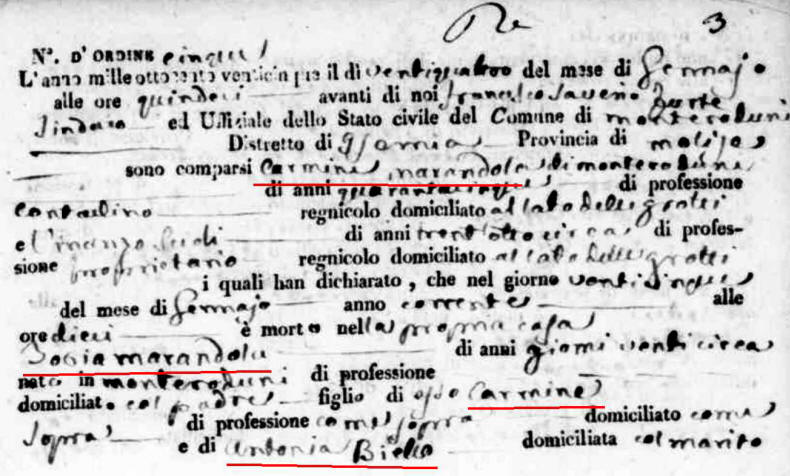 Re 3
Nº. D'ORDINE cinque
L'anno mille ottocento venticinque il dì ventiquattro del mese di Gennajo
alle ore quindeci avanti di noi Francesco Saverio
Sindaco ed Uffiziale dello Stato civile del Comune di monteroduni
Distretto di Isernia Provincia di molise
sono comparsi Carmine marandola di monteroduni
di anni quarantacinque di professione
contadino regnicolo domiciliato al lato delle grotti
e di anni trentotto circa di profes-
sione proprietario regnicolo domiciliato al lato delle grotti
i quali han dichiarato, che nel giorno venticinque
del mese di Gennajo anno corrente alle
ore dieci è morto nella propria casa
marandola di anni giorni venti circa
nato in monteroduni di professione
domiciliato col padre figlio di esso Carmine
di professione come sopra domiciliato come
sopra e di Antonia Biello domiciliata col marito